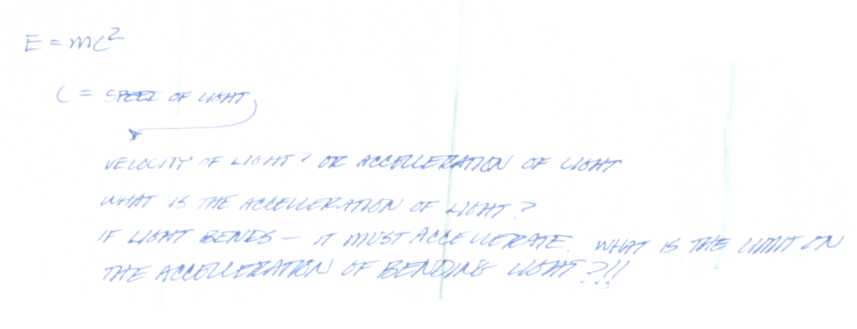 E = mc²
C = SPEED OF LIGHT
VELOCITY OF LIGHT OR ACCELLERATION OF LIGHT
WHAT IS THE ACCELLERATION OF LIGHT?
IF LIGHT BENDS — IT MUST ACCELLERATE. WHAT IS THE LIMIT ON
THE ACCELLERATION OF BENDING LIGHT?!!